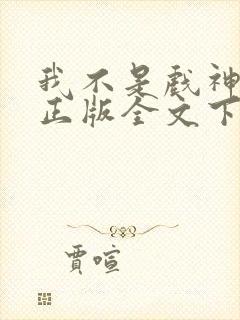 我不是戏神
正版全文下
贾喧